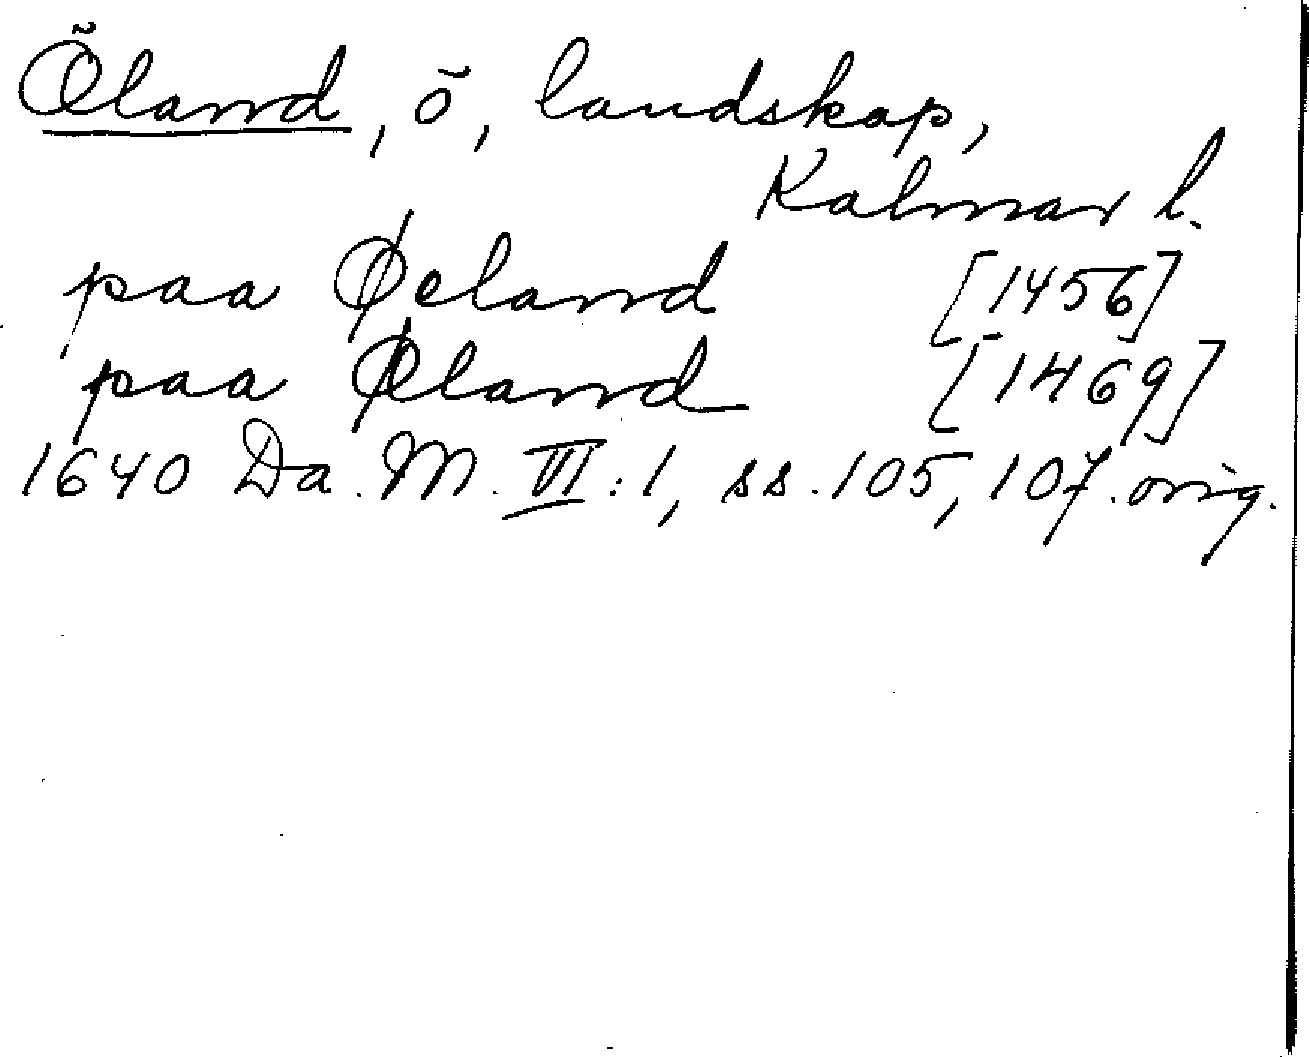 Öland, ö, landskap,
Kalmar l.
paa Øeland [1456]
paa Øland [1469]
1640 Da. M. VI: 1, ss. 105, 107. orig.